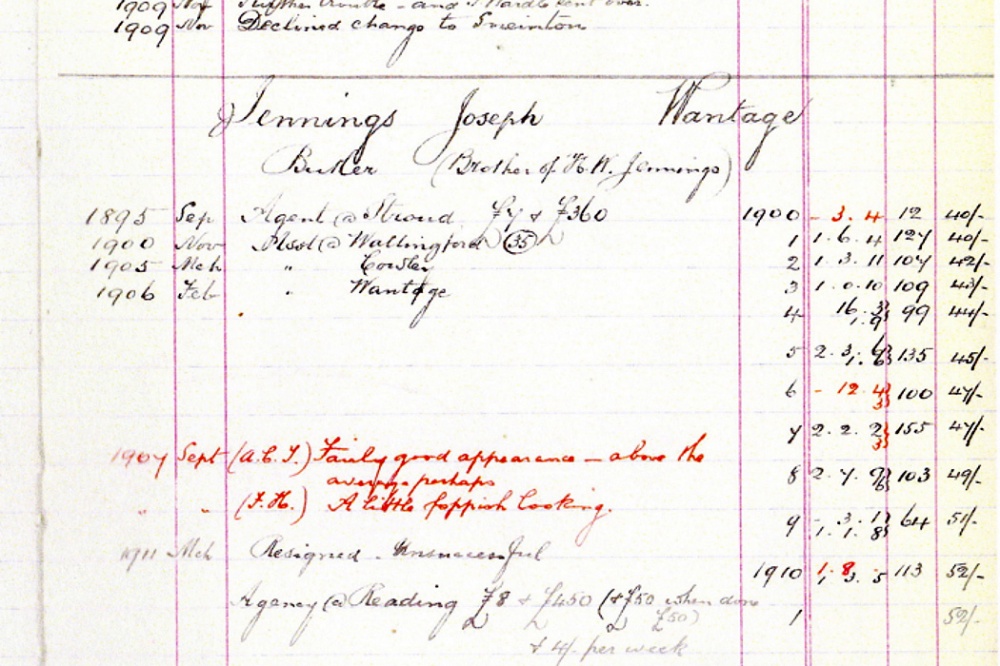 1909 Nov Further trouble - and
1909 Nov Declined change to Sneinton
Jennings Joseph Wantage
Butler (Brother of H. W. Jennings)
1895 Sep Agent @ Stroud £7 + £360 1900 - 3. 4 12 40/-
1900 Nov Asst @ Wallingford (35) 1 1. 6. 4 127 40/-
1905 Mch " Cowley 2 1. 3. 11 107 42/-
1906 Feb " Wantage 3 1. 0. 10 109 43/-
4 16. 3 99 44/-
1. 9
5 2. 3. 135 45/-
6 - 12. 4 100 47/-
3
7 2. 2. 2 155 47/-
3
1907 Sept (A.C.T.) Fairly good appearance - above the
average perhaps 8 2. 7. 103 49/-
" " (F.H.) A little foppish looking.
9 - 3. 1 64 51/-
1. 1. 8
1911 Mch Resigned - Unsuccessful
1910 1. 8. - 113 52/-
1, 3. 5
Agency @ Reading £8 + £450 (+£50 when done 1 52/-
£50)
+ 4/- per week